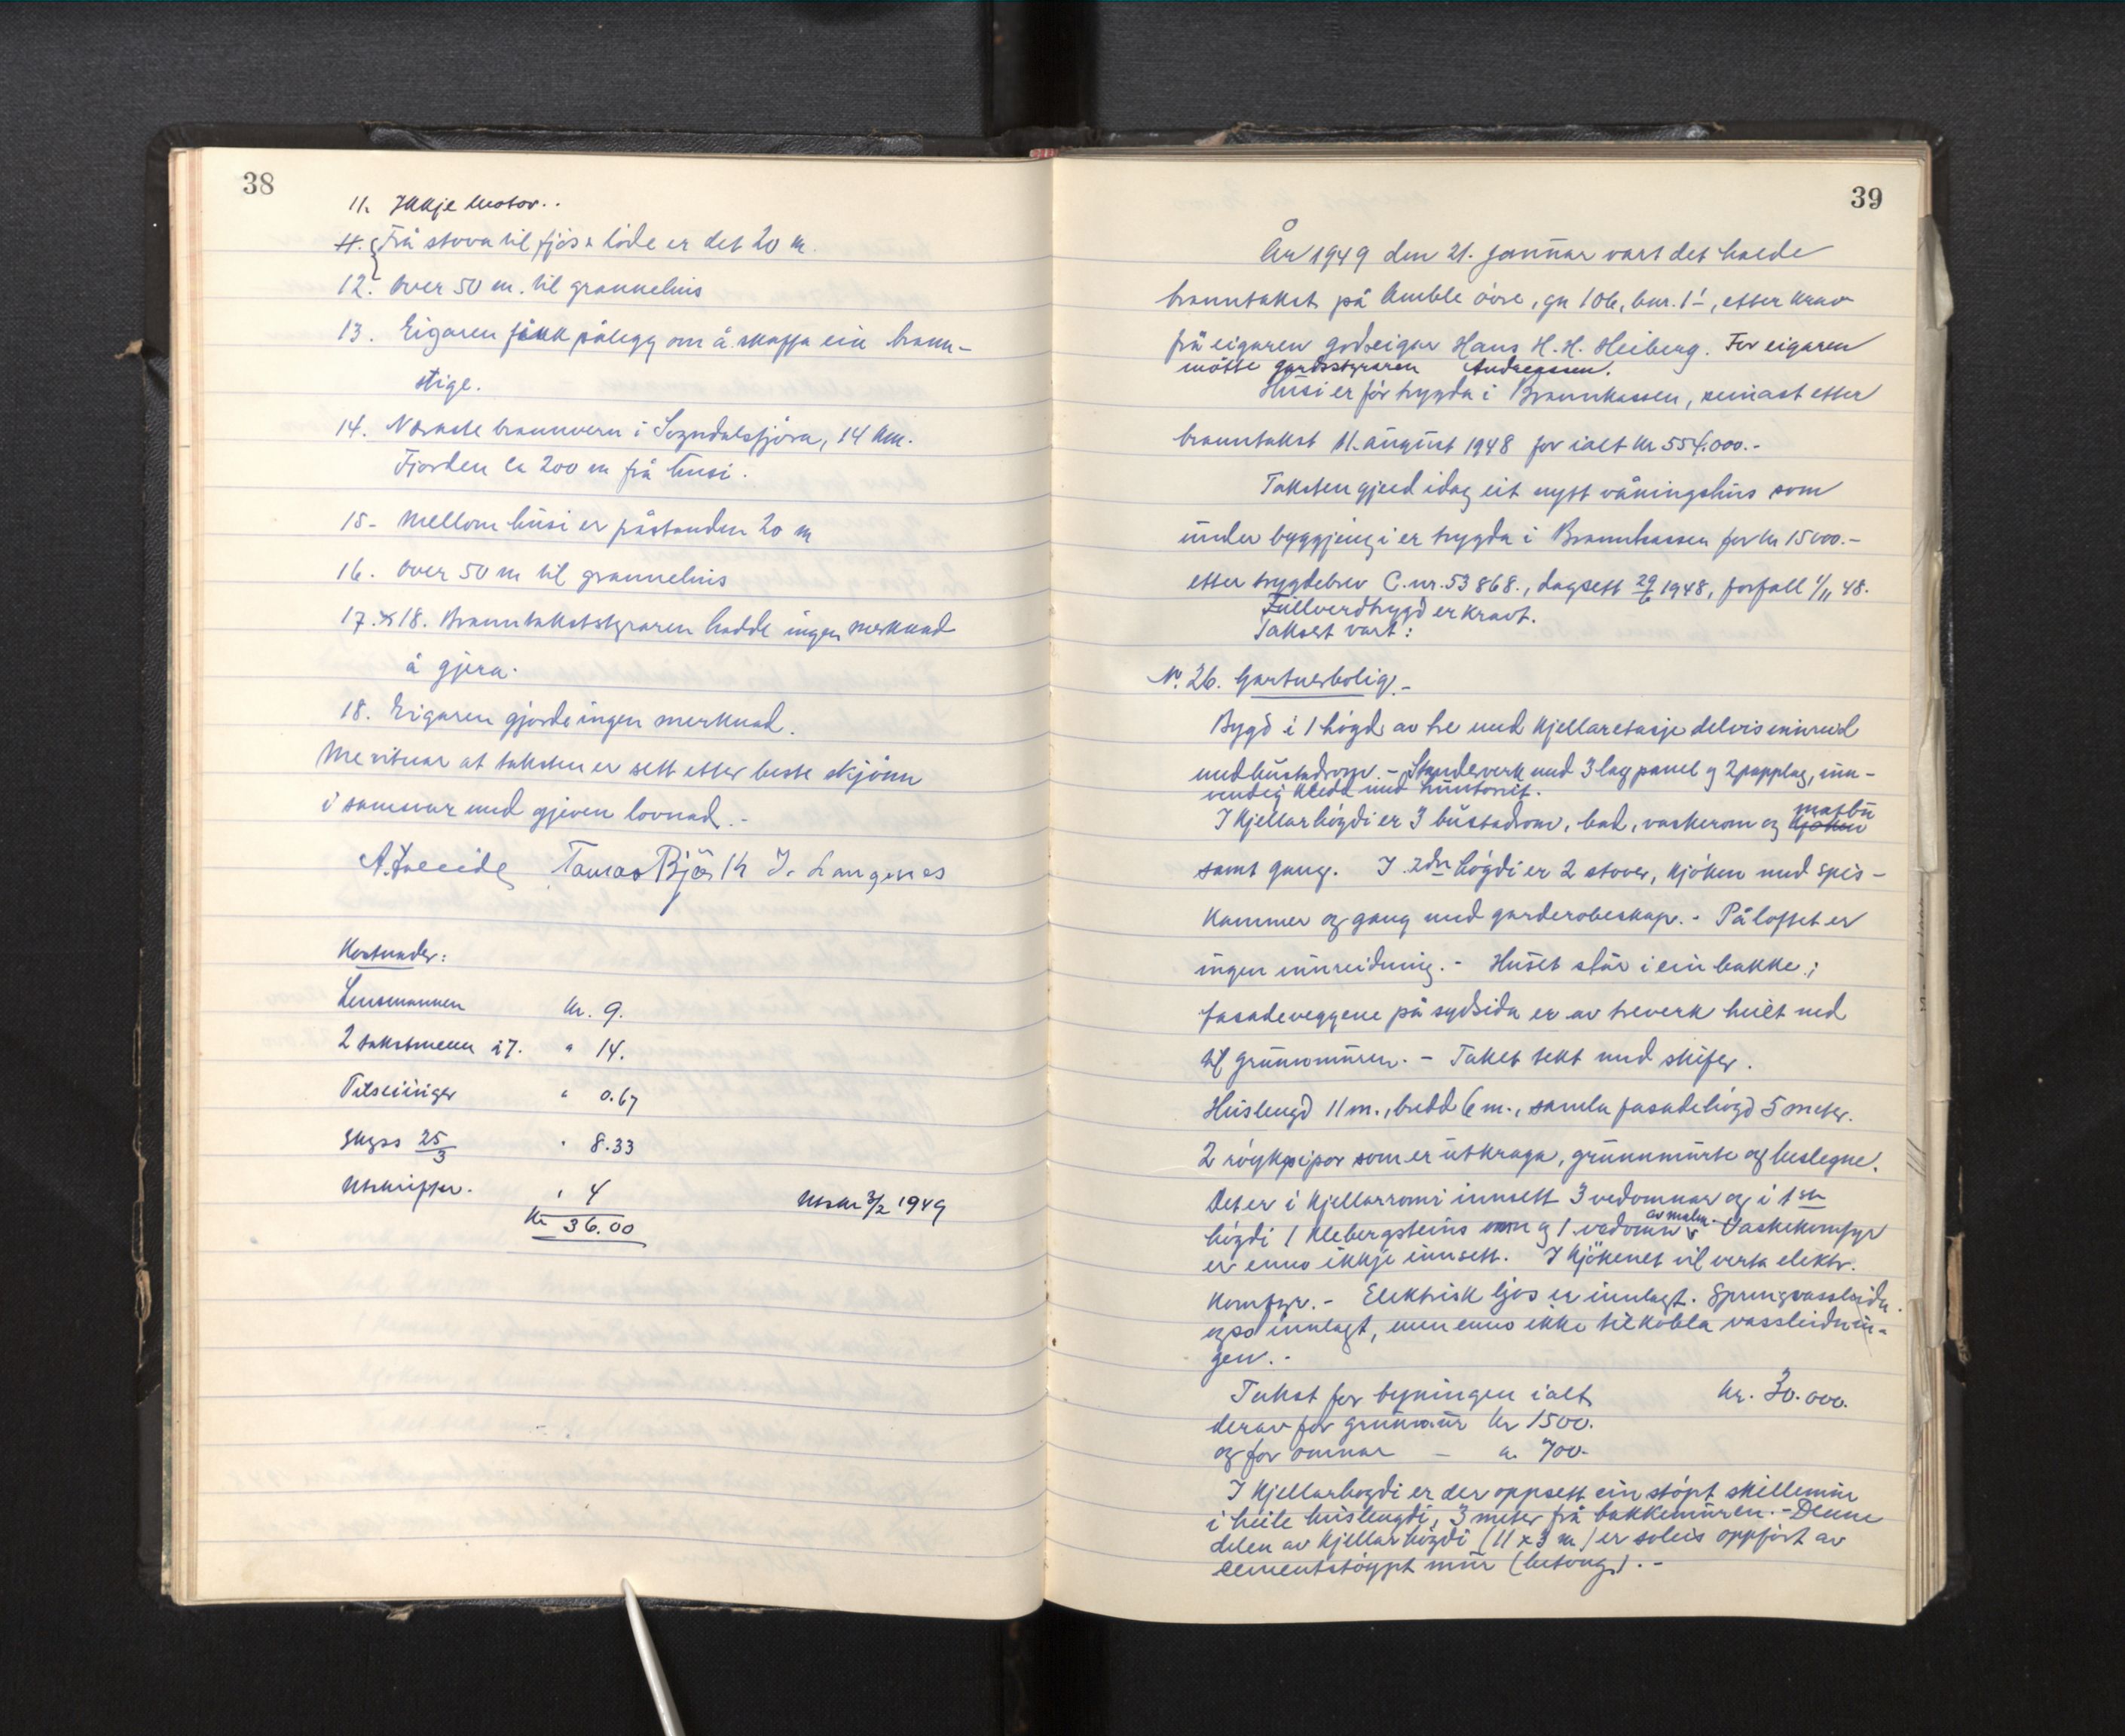 38
11. Ikkje motor..
11. Frå stova til fjös & löde er det 20 m.
12. Over 50 m. til grannehus
13. Eigaren fikk pålegg om å skaffa ein brann-
stige.
14. Næraste brannvern i Sogndalsfjöra, 14 km.
Fjorden ca 200 m frå husi.
15. Mellom husi er påstanden 20 m
16. Over 50 m til grannehus
17. & 18. Branntakststyraren hadde ingen merknad
å gjera.
18. Eigaren gjorde ingen merknad.
Me vitnar at taksten er sett etter beste skjönn
i samsvar med gjeven lovnad.-
Tomas J. Langenes
Kostnader:
Lensmannen kr. 9.
2 takstmenn i 7. " 14.
Utseiingar " 0.67
Skyss 25/3 " 8.33
Utskrifter. " 4
Kr 36.00
Utskr 3/2 1949
39
År 1949 den 21. januar vart det halde
branntakst på Amble övre, gn 106, bnr. 1, etter krav
frå eigaren godseigar Hans H. H. Heiberg. For eigaren
mötte gardsstyraren Andreassen.
Husi er för trygda i Brannkassen, seinast etter
branntakst 11. august 1948 for ialt kr 554.000.-
Taksten gjeed idag eit nytt våningshus som
under byggjing i er trygda i Brannkassen for kr 15000.-
etter trygdebrev C. nr. 53868., dagsett 29/6 1948, forfall 1/11 48.
Fullverdtrygd er kravt.
Taksert vart:
Nr. 26. Gartnerbolig.-
Bygd i 1 högd av tre med kjellaretasje delvis innreid
med bustadrom.- Standerverk med 3 lag panel og 2 papplag, inn-
vendig kledd med huntonit.
I kjellarhögdi er 3 bustadrom, bad, vaskerom og kjöken matbu
samt gang. I 2dre högdi er 2 stover, kjöken med spis-
kammer og gang med garderobeskap.- På loftet er
ingen innreidning.- Huset står i ein bakke;
fasadeveggene på sydsida er av treverk heilt ned
til grunnmuren.- Taket tekt med skifer.
Huslengd 11 m., bredd 6 m., samla fasadehögd 5 meter.
2 röykpipor som er utkraga, grunnmurte og beslegne.
Det er i kjellarromi innsett 3 vedomnar og i 1ste
högdi 1 klebergsteins omn og 1 vedomn av malm. Vaskekomfyr
er enno ikkje innsett. I kjökenet vil verta elektr.
komfyr.- Elektrisk ljos er innlagt. Springvassleidn.
ogso innlagt, men enno ikke tilkobla vassleidnin-
gen.-
Takst for bygningen ialt kr. 30.000.
derav for grunnmur kr 1500.
og for omnar - " 700.
I kjellarhögdi er der oppsett ein stöpt skillemur
i heile huslengdi, 3 meter frå bakkemuren.- Denne
delen av kjellarhögdi (11 x 3 m) er soleis oppfört av
cementstöypt mur (betong).-